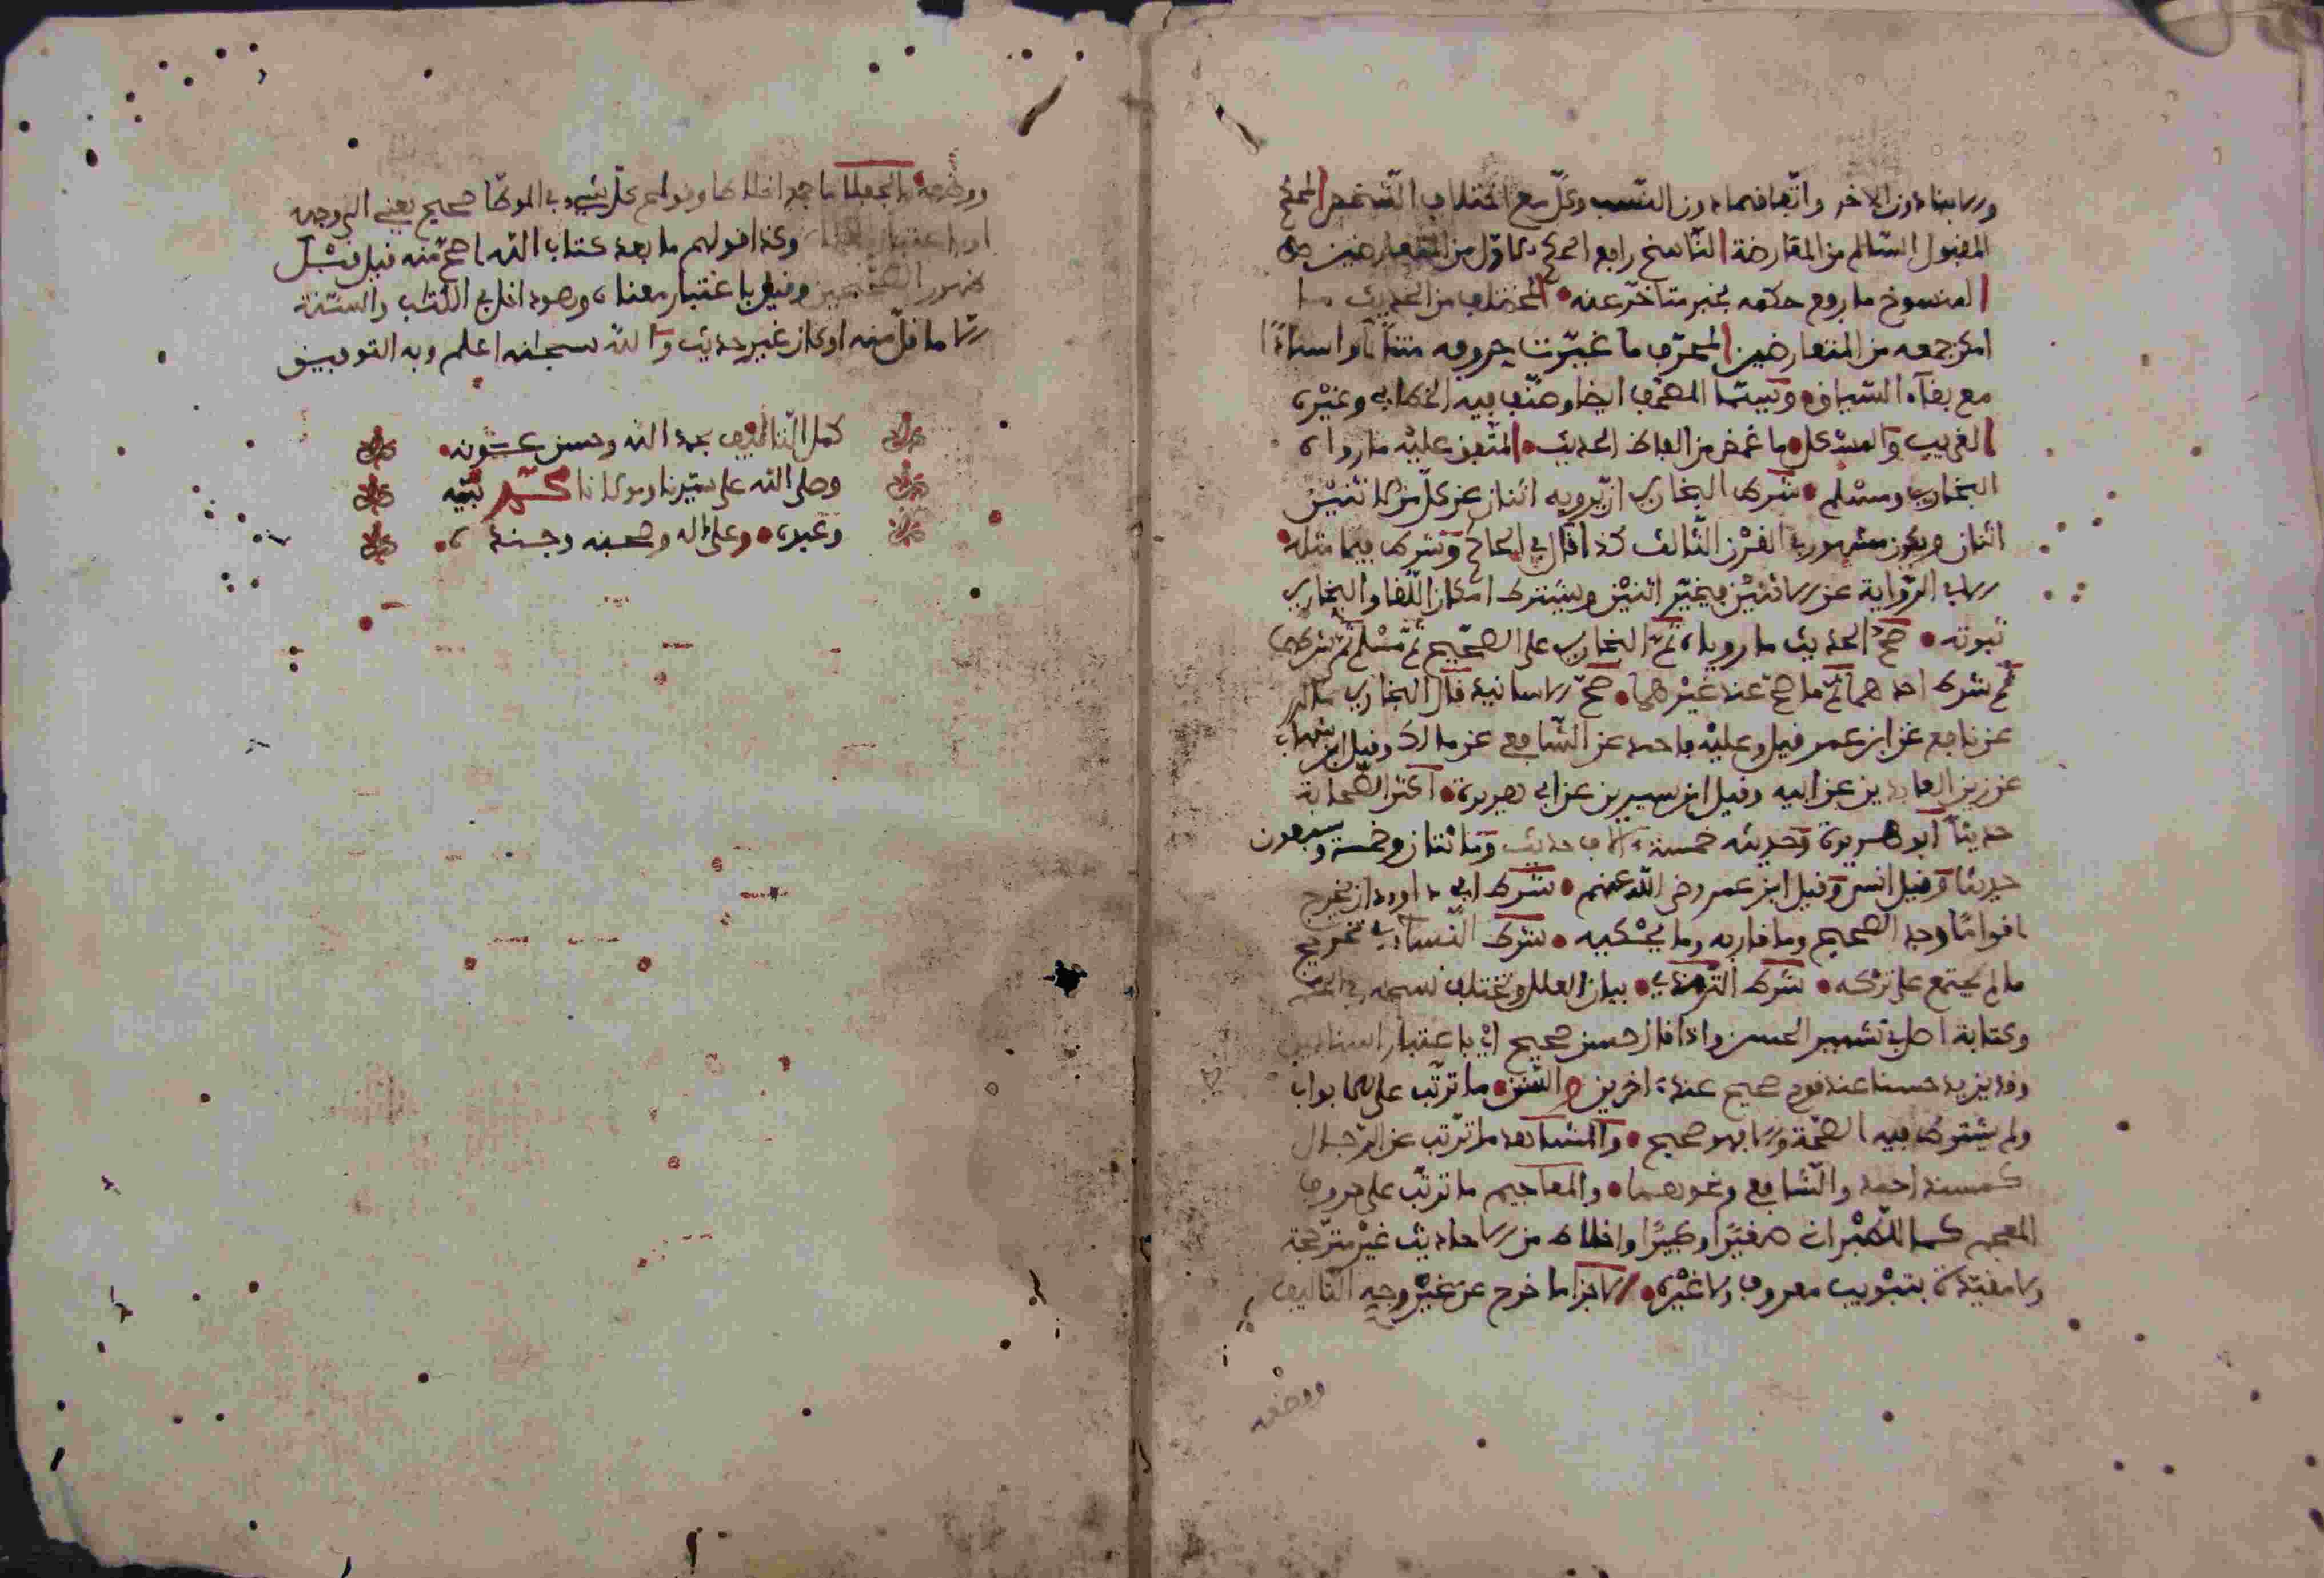 والابناء دون الاخر واتفاقهما دون النسب وكل مع اختلاف الشخص المحكم
المقبول السالم من المعارضة الناسخ رافع الحكم الاول من المتعارضين
المنسوخ ما روع حكمه بخبر متاخر عنه المختلف من الحديث ما
امكن جمعه من المتعارضين المحرف ما غيرت حروفه متنا او اسنادا
مع بقاء السياق ويسمى المصحف ايضا وصنف فيه الخطابي وغيره
الغريب والمشكل ما غمض من الفاظ الحديث المتفق عليه ما رواه
البخاري ومسلم شرط البخاري ان يرويه اثنان عن كل من الاثنين
اثنان ويكون مشهورا في القرن الثالث كذا قال في الحاكم وشرط فيها مثله
الرواية عن الاثنين فيغير اثنين ويشترط امكان اللقا والبخاري
ثبوته صح الحديث ما روياه ثم البخاري على الصحيح ثم مسلم ثم شرطهما
ثم شرط احدهما ثم ما صح عند غيرهما اصح الاسانيد قال البخاري مالك
عن نافع عن ابن عمر قيل وعليه فاحمد عن الشافعي عن مالك وقيل ابن شهاب
عن زين العابدين عن ابيه وقيل ابن سيرين عن ابي هريرة اكثر الصحابة
حديثا ابو هريرة وحديثه خمسة الاف حديث ومائتان وخمسة وسبعون
حديثا وقيل انس وقيل ابن عمر رضي الله عنهم شرط ابي داوود ان يخرج
اقوا ما وجد الصحيح وما قاربه وما يحكيه شرط النساءي تخريج
ما لم يجتمع على تركه شرط الترمذي بيان العلل وتختلف نسخه في الحكم
وكتابه اصل في تشهير الحسن واذا قال حسن صحيح اي باعتبار اسنادين
وقد يريد حسنا عند قوم صحيح عند اخرين والسنن ما ترتب على الابواب
ولم يشترط فيه الصحة والا فهو صحيح والمساند ما ترتب عن الرجال
كمسند احمد والشافعي ونحوهما والمعاجيم ما ترتب على حروف
المعجم كما للطبراني صغيرا وكبيرا واخلاط من الاحاديث غير مترجمة
ولا مقيدة بتبويب معروف ولا غيره الاجزا ما خرج عن غير وجه التاليف
ووضعه
ووضعه بالجملة ما جمع اخلاطا وقولهم كل شيء في الموطا صحيح يعني الى وجه
او باعتبار وكذا قولهم ما بعد كتاب الله اصح منه قيل قبل
ظهور الصحيحين وقيل باعتبار معناه وهو داخل في الكتاب والسنة
الا ما قل منه او كان غير حديث والله سبحانه اعلم وبه التوفيق
كمل التاليف بحمد الله وحسن عونه
وصلى الله على سيدنا ومولانا محمد نبيه
وعبده وعلى اله وصحبه وجنده